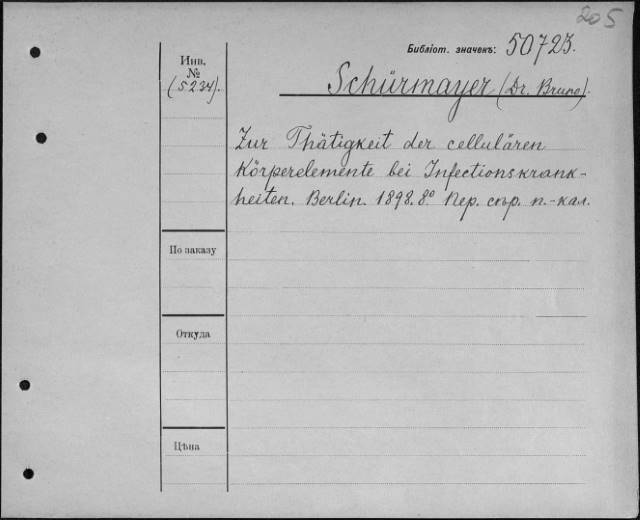 205
Библіот. значекъ: 50723.
Инв.
№
(5234).
Schürmayer (Dr. Bruno).
Zur Thätigkeit der cellulären
Körperelemente bei Infectionskrank-
heiten. Berlin. 1898. 8° Пер. спр. п.-кал.
По заказу
Откуда
Цѣна